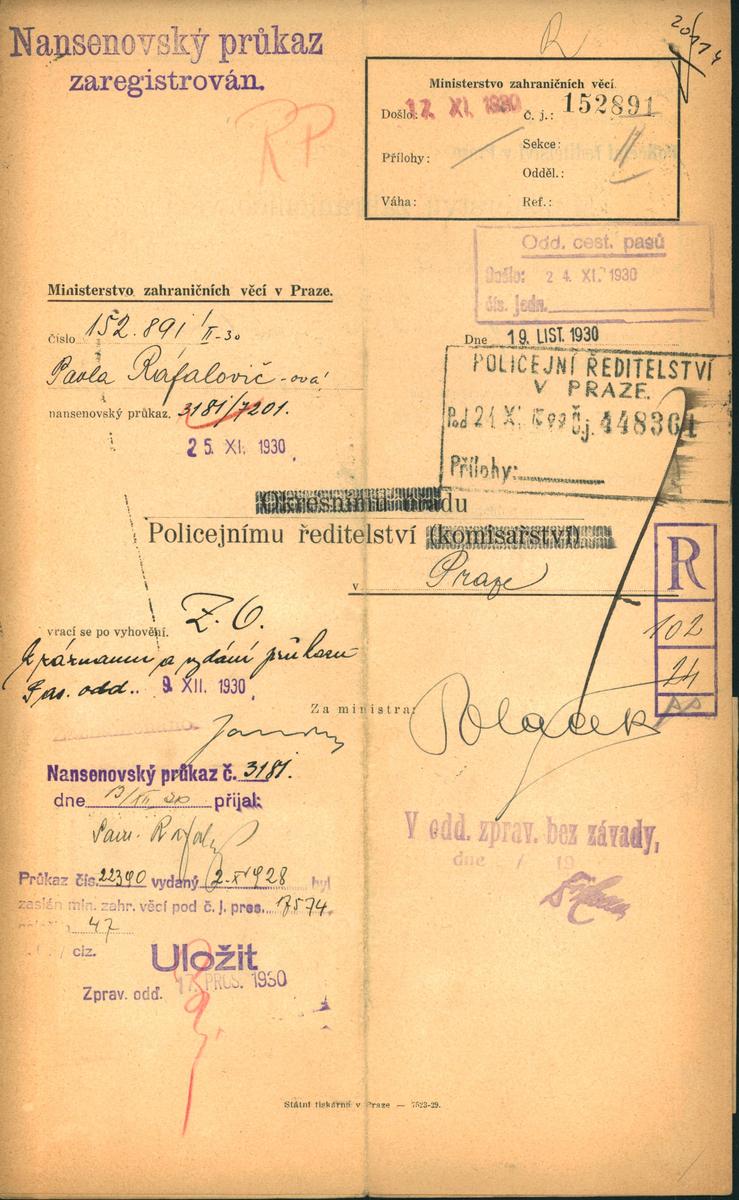 Nansenovský průkaz
zaregistrován.
R
20/11 4
RP
Ministerstvo zahraničních věcí.
Došlo: 17. XI. 1930 Č. j.: 152891
Přílohy:
Sekce: II
Odděl.:
Váha: Ref.:
Odd. cest. pasů
Došlo: 24. XI. 1930
čís. jedn.
Ministerstvo zahraničních věcí v Praze.
Číslo 152.891/II-30
Dne 19. LIST. 1930
Pavla Rafalovič-ová
nansenovský průkaz. 3181/7201.
25. XI. 1930.
POLICEJNÍ ŘEDITELSTVÍ
V PRAZE.
Č.j. 448364
Přílohy:
Okresnímu úřadu
Policejnímu ředitelství (komisařství)
v Praze
R
102
24
vrací se po vyhovění.
Z. O.
K záznamu a vydání průkazu
Pas. odd. 9. XII. 1930.
Za ministra:
Nansenovský průkaz č. 3181.
dne 13/XII 30 přijal:
Průkaz čís. 22390 vydaný 2. XI 928 byl
zaslán min. zahr. věcí pod č. j. pres. 17574.
47
ciz.
V odd. zprav. bez závady,
dne / 19
Uložit
Zprav. odd. 17. PROS. 1930
Státní tiskárna v Praze — 7523-29.